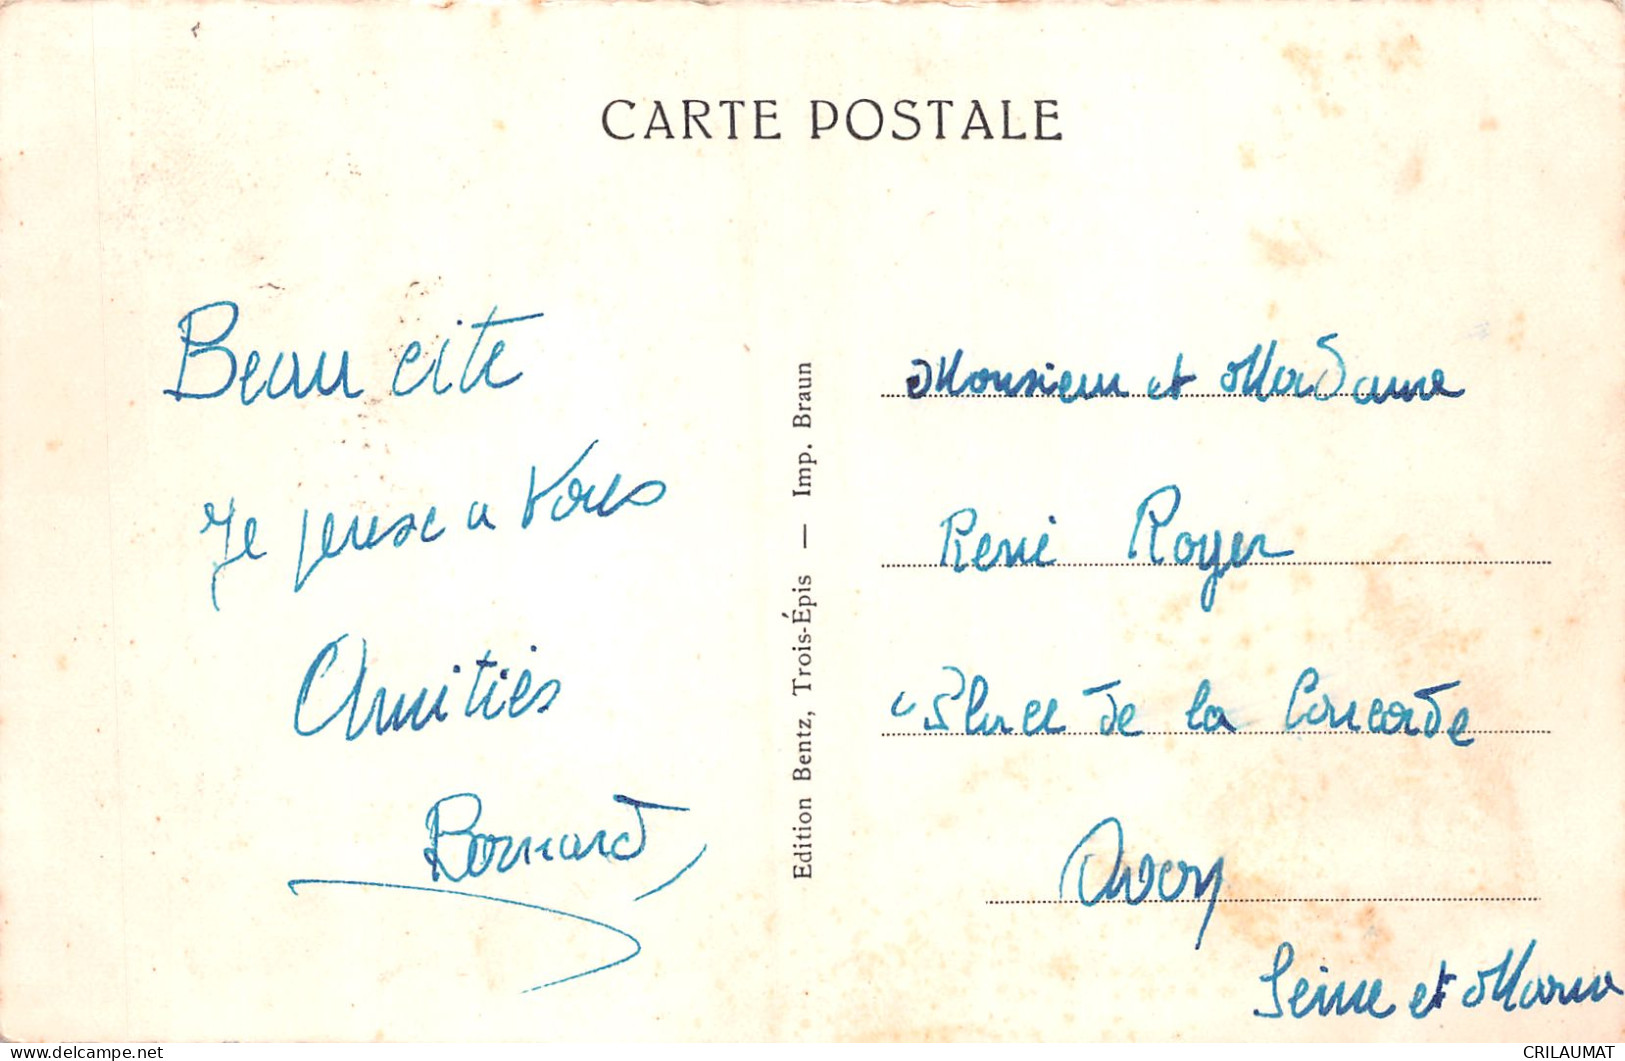 CARTE POSTALE
Beau cite
Je pense a Vous
Amitiés
Bernard
Edition Bentz, Trois-Épis — Imp. Braun
Monsieur et Madame
René Royer
Place de la Concorde
Avon
Seine et Marne
CRILAUMAT
www.delcampe.net